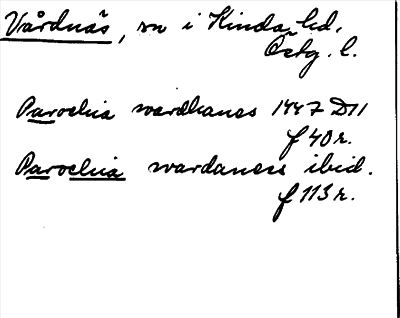 Vårdnäs, sn i Kinda hd,
Östg. l.
Parochia wardhanes 1447 D11
f 40 r.
Parochia wardaness ibid.
f 113 r.